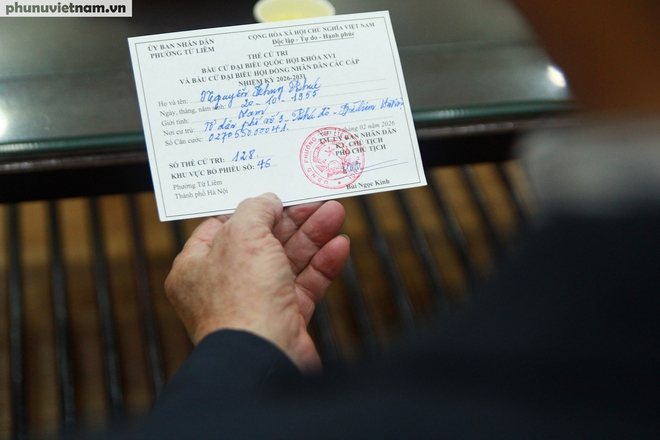 phunuvietnam.vn
ỦY BAN NHÂN DÂN
PHƯỜNG TỪ LIÊM
CỘNG HÒA XÃ HỘI CHỦ NGHĨA VIỆT NAM
Độc lập - Tự do - Hạnh phúc
THẺ CỬ TRI
BẦU CỬ ĐẠI BIỂU QUỐC HỘI KHÓA XVI
VÀ BẦU CỬ ĐẠI BIỂU HỘI ĐỒNG NHÂN DÂN CÁC CẤP
NHIỆM KỲ 2026-2031
Họ và tên: Nguyễn
Ngày, tháng, năm sinh: 20-10-1955
Giới tính: Nam
Nơi cư trú: Tổ dân phố số 9 - Phú Đô - Từ Liêm Hà Nội
Số Căn cước:
tháng 02 năm 2026
TM. ỦY BAN NHÂN DÂN
KT. CHỦ TỊCH
PHÓ CHỦ TỊCH
SỐ THẺ CỬ TRI: 128.
KHU VỰC BỎ PHIẾU SỐ: 46
Phường Từ Liêm
Thành phố Hà Nội
Bùi Ngọc Kính